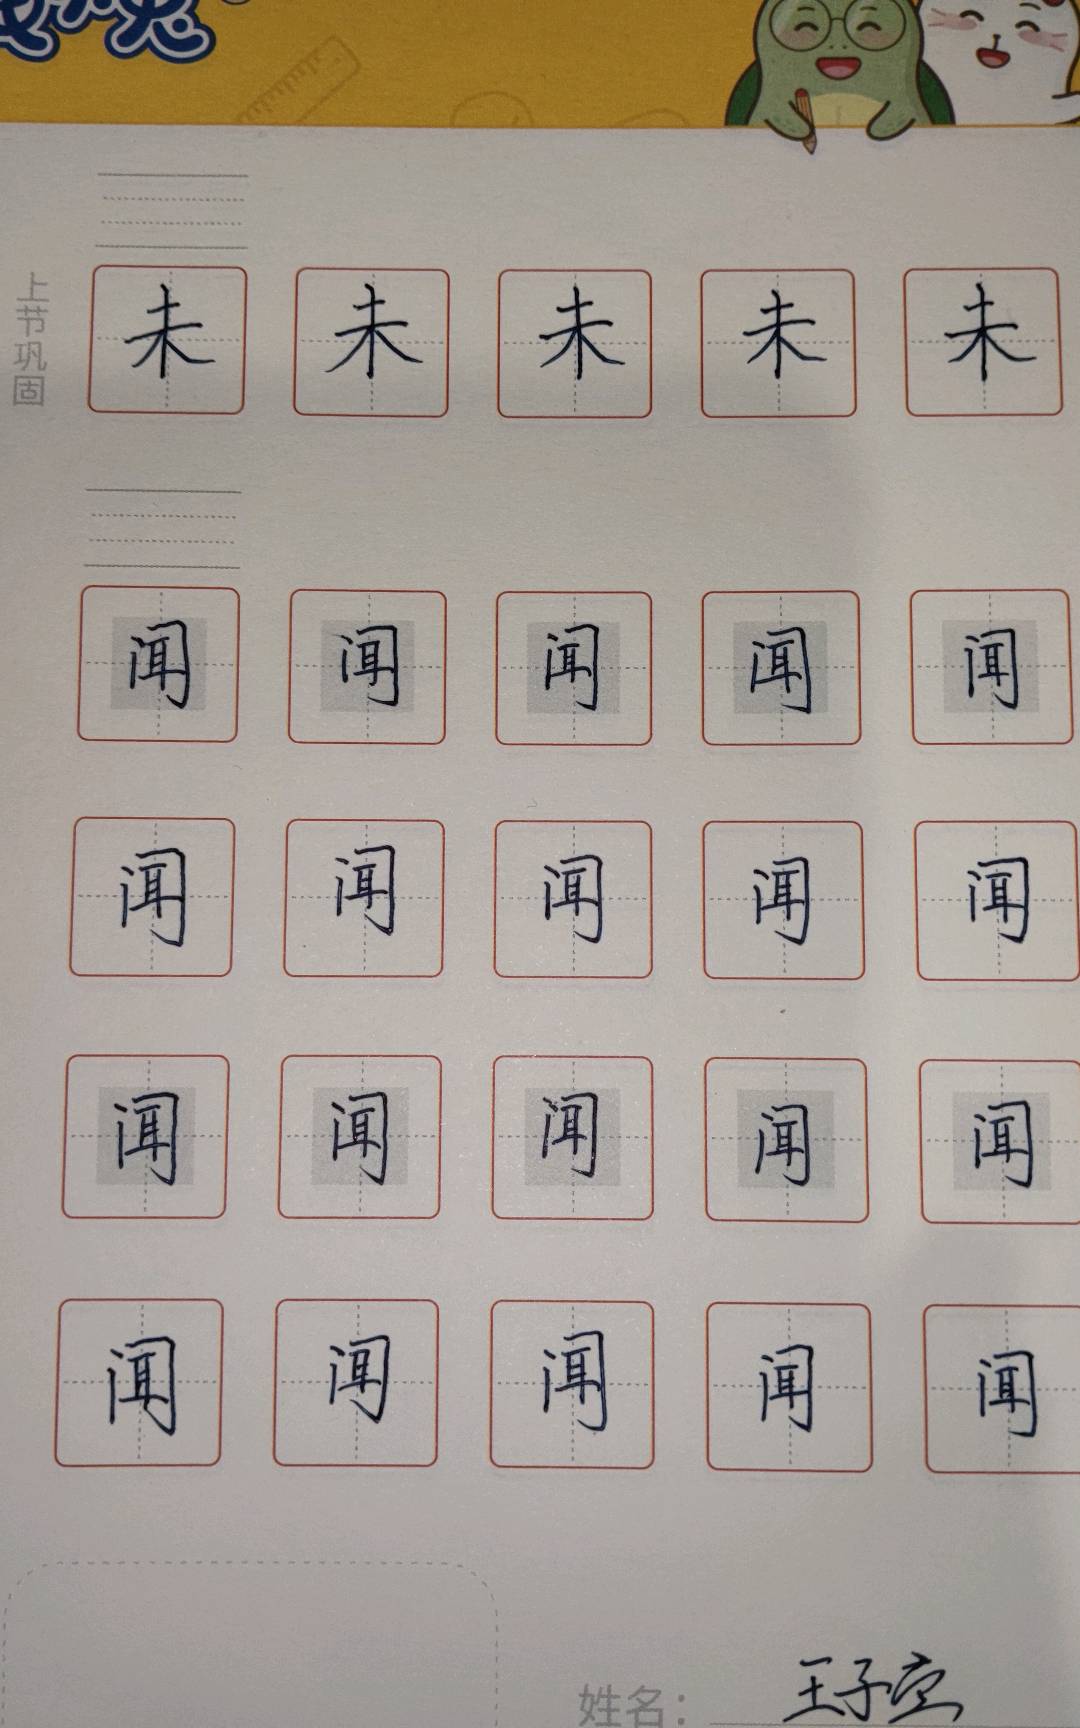 上节巩固
未 未 未 未 未
闻 闻 闻 闻 闻
闻 闻 闻 闻 闻
闻 闻 闻 闻 闻
闻 闻 闻 闻 闻
姓名： 王子